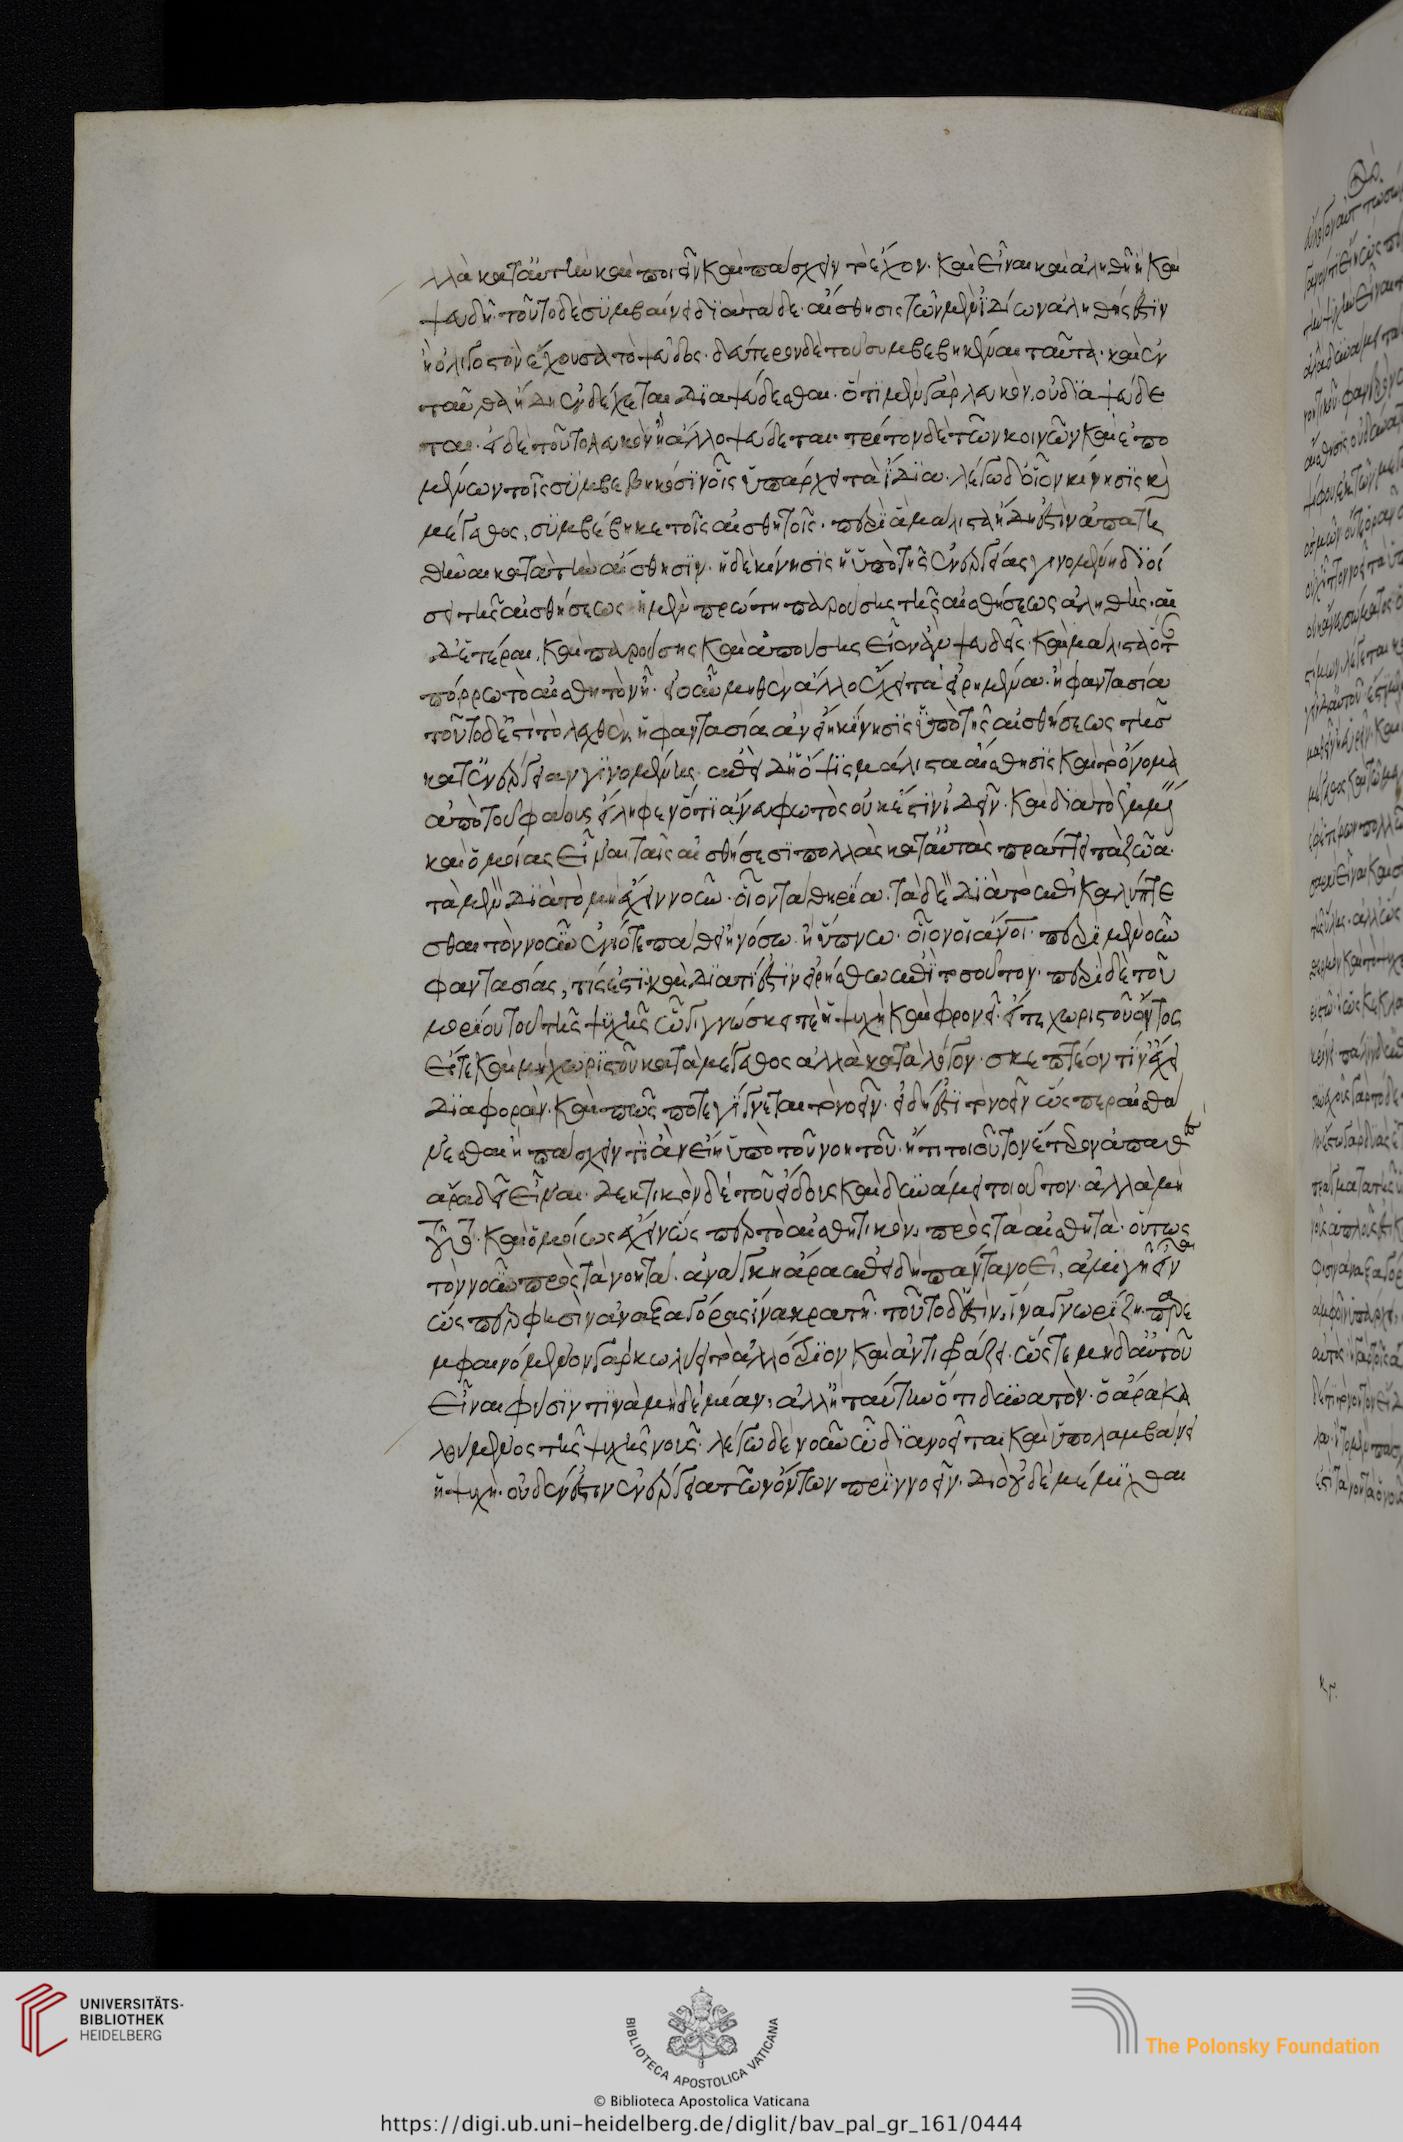 λλὰ κατ' αὐτὴν καὶ ποιεῖν καὶ πάσχειν τὸ ἔχον. καὶ εἶναι καὶ ἀληθῆ ἢ καὶ
ψευδῆ. τοῦτο δὲ συμβαίνει διὰ τάδε. αἴσθησις τῶν μὲν ἰδίων ἀληθής ἐστιν
ἢ ὀλιγοστὸν ἔχουσα τὸ ψεῦδος. δεύτερον δὲ τοῦ συμβεβηκέναι ταῦτα. καὶ ἐν
ταῦθα ἤδη ἐνδέχεται διαψεύδεσθαι. ὅτι μὲν γὰρ λευκὸν, οὐ διαψεύδε
ται. εἰ δὲ τοῦτο λευκὸν ἢ ἄλλο ψεύδεται. τρίτον δὲ τῶν κοινῶν καὶ ἑπο
μένων τοῖς συμβεβηκόσιν οἷς ὑπάρχει τὰ ἴδια. λέγω δ' οἷον κίνησις καὶ
μέγεθος, συμβέβηκε τοῖς αἰσθητοῖς. περὶ ἃ μάλιστα ἤδη ἐστὶν ἀπατη
θῆναι κατὰ τὴν αἴσθησιν. ἡ δὲ κίνησις ἡ ὑπὸ τῆς ἐνεργείας γινομένη διοί
σει τῆς αἰσθήσεως ἡ μὲν πρώτη παρούσης τῆς αἰσθήσεως ἀληθής. αἱ
δ' ἕτεραι. καὶ παρούσης καὶ ἀπούσης εἶεν ἂν ψευδεῖς. καὶ μάλιστα ὅτ
πόρρω τὸ αἰσθητὸν ᾖ. εἰ οὖν μηθὲν ἄλλο ἔχει τὰ εἰρημένα. ἢ φαντασία
τοῦτο δ' ἐστὶ τὸ λεχθὲν, ἡ φαντασία ἂν εἴη κίνησις ὑπὸ τῆς αἰσθήσεως τῆς
κατ' ἐνέργειαν γινομένης. ἐπεὶ δ' ἡ ὄψις μάλιστα αἴσθησις καὶ τὸ ὄνομα
ἀπὸ τοῦ φάους εἴληφεν ὅτι ἄνευ φωτὸς οὐκ ἔστιν ἰδεῖν. καὶ διὰ τὸ ἐμμέν
καὶ ὁμοίας εἶναι ταῖς αἰσθήσεσι πολλὰς κατ' αὐτὰς πράττει τὰ ζῶα.
τὰ μὲν διὰ τὸ μὴ ἔχειν νοῦν. οἷον τὰ θηρία. τὰ δὲ διὰ τὸ ἐπικαλύπτε
σθαι τὸν νοῦν ἐνίοτε πάθει ἢ νόσω ἢ ὕπνω. οἷον οἱ ἄνοι. περὶ μὲν οὖν
φαντασίας, τίς ἐστι καὶ διατί ἐστὶν εἰρήσθω ἐπὶ τοσοῦτον. περὶ δὲ τοῦ
μορίου τοῦ τῆς ψυχῆς ὧ γινώσκει τε ἡ ψυχὴ καὶ φρονεῖ. εἴτε χωριστοῦ ὄντος
εἴτε καὶ μὴ χωριστοῦ κατὰ μέγεθος ἀλλὰ κατὰ λόγον. σκεπτέον τίν' ἔχει
διαφορὰν. καὶ πῶς ποτε γίγνεται τὸ νοεῖν. εἰ δή ἐστι τὸ νοεῖν ὥσπερ αἰσθά
νεσθαι ἢ πάσχειν τι ἂν εἴη ὑπὸ τοῦ νοητοῦ. ἤ τι τοιοῦτον ἕτερον ἀπαθ
ἄρα δεῖ εἶναι. δεκτικὸν δὲ τοῦ εἴδους καὶ δυνάμει τοιοῦτον. ἀλλὰ μὴ
τοῦτο. καὶ ὁμοίως ἔχειν ὥσπερ τὸ αἰσθητικὸν, πρὸς τὰ αἰσθητὰ. οὕτως
τὸν νοῦν πρὸς τὰ νοητά. ἀνάγκη ἄρα ἐπειδὴ πάντα νοεῖ, ἀμιγῆ εἶναι
ὥσπερ φησὶν ἀναξαγόρας ἵνα κρατῆ. τοῦτο δ' ἐστὶν, ἵνα γνωρίζη. παρε
μφαινόμενον γὰρ κωλύει τὸ ἀλλότριον καὶ ἀντιφράζει. ὥστε μηδ' αὐτοῦ
εἶναι φύσιν τινὰ μηδεμίαν, ἀλλ' ἢ ταύτην ὅτι δυνατὸν. ὁ ἄρα κα
λούμενος τῆς ψυχῆς νοῦς. λέγω δὲ νοῦν ὧ διανοεῖται καὶ ὑπολαμβάνει
ἡ ψυχὴ. οὐδέν ἐστιν ἐνεργεία τῶν ὄντων πρὶν νοεῖν. διὸ οὐδὲ μεμίχθαι
UNIVERSITÄTS-
BIBLIOTHEK
HEIDELBERG
BIBLIOTECA APOSTOLICA VATICANA
The Polonsky Foundation
© Biblioteca Apostolica Vaticana
https://digi.ub.uni-heidelberg.de/diglit/bav_pal_gr_161/0444